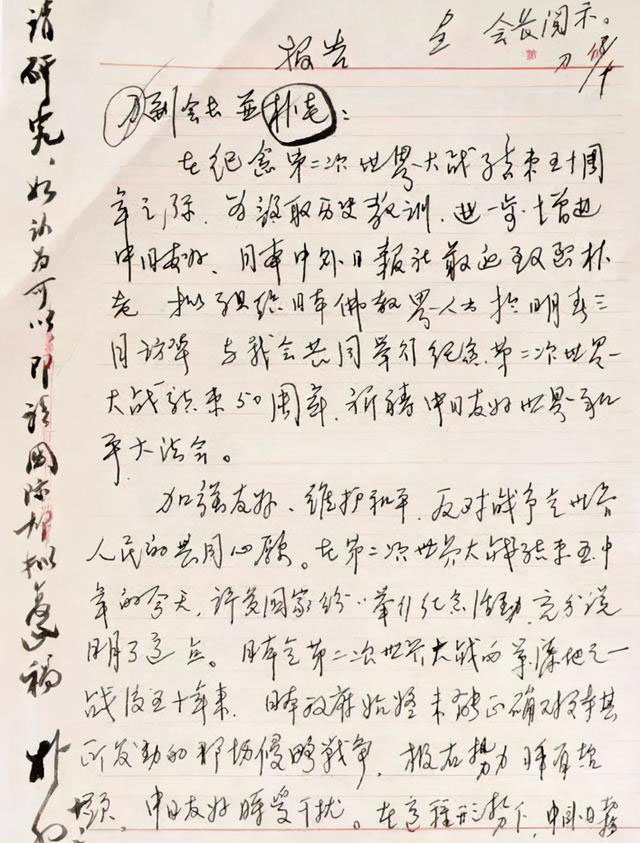 会长阅示。
报告
刀副会长並朴老：
在纪念第二次世界大战结束五十周
年之际，为汲取历史教训，进一步增进
中日友好，日本中外日报社最近致函朴
老 拟组织日本佛教界人士于明春三
月访华 与我会共同举行纪念第二次世界
大战结束50周年，祈祷中日友好世界和
平大法会。
加强友好、维护和平，反对战争是世界
人民的共同心愿。在第二次世界大战结束五十
年的今天，许多国家纷纷举行纪念活动，充分说
明了这点。日本是第二次世界大战的策源地之一
战后五十年来，日本政府始终未能正确对待其
所发动的那场侵略战争，极右势力时有抬
头，中日友好时受干扰。在这种形势下，中外日报
请研究，如认为可以，即请国际部拟复稿
朴